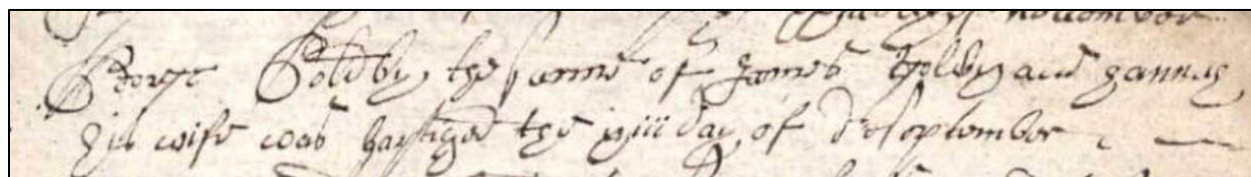 november
George Goldby the sonne of James Goldby and hannah
his wife was baptized the day of september